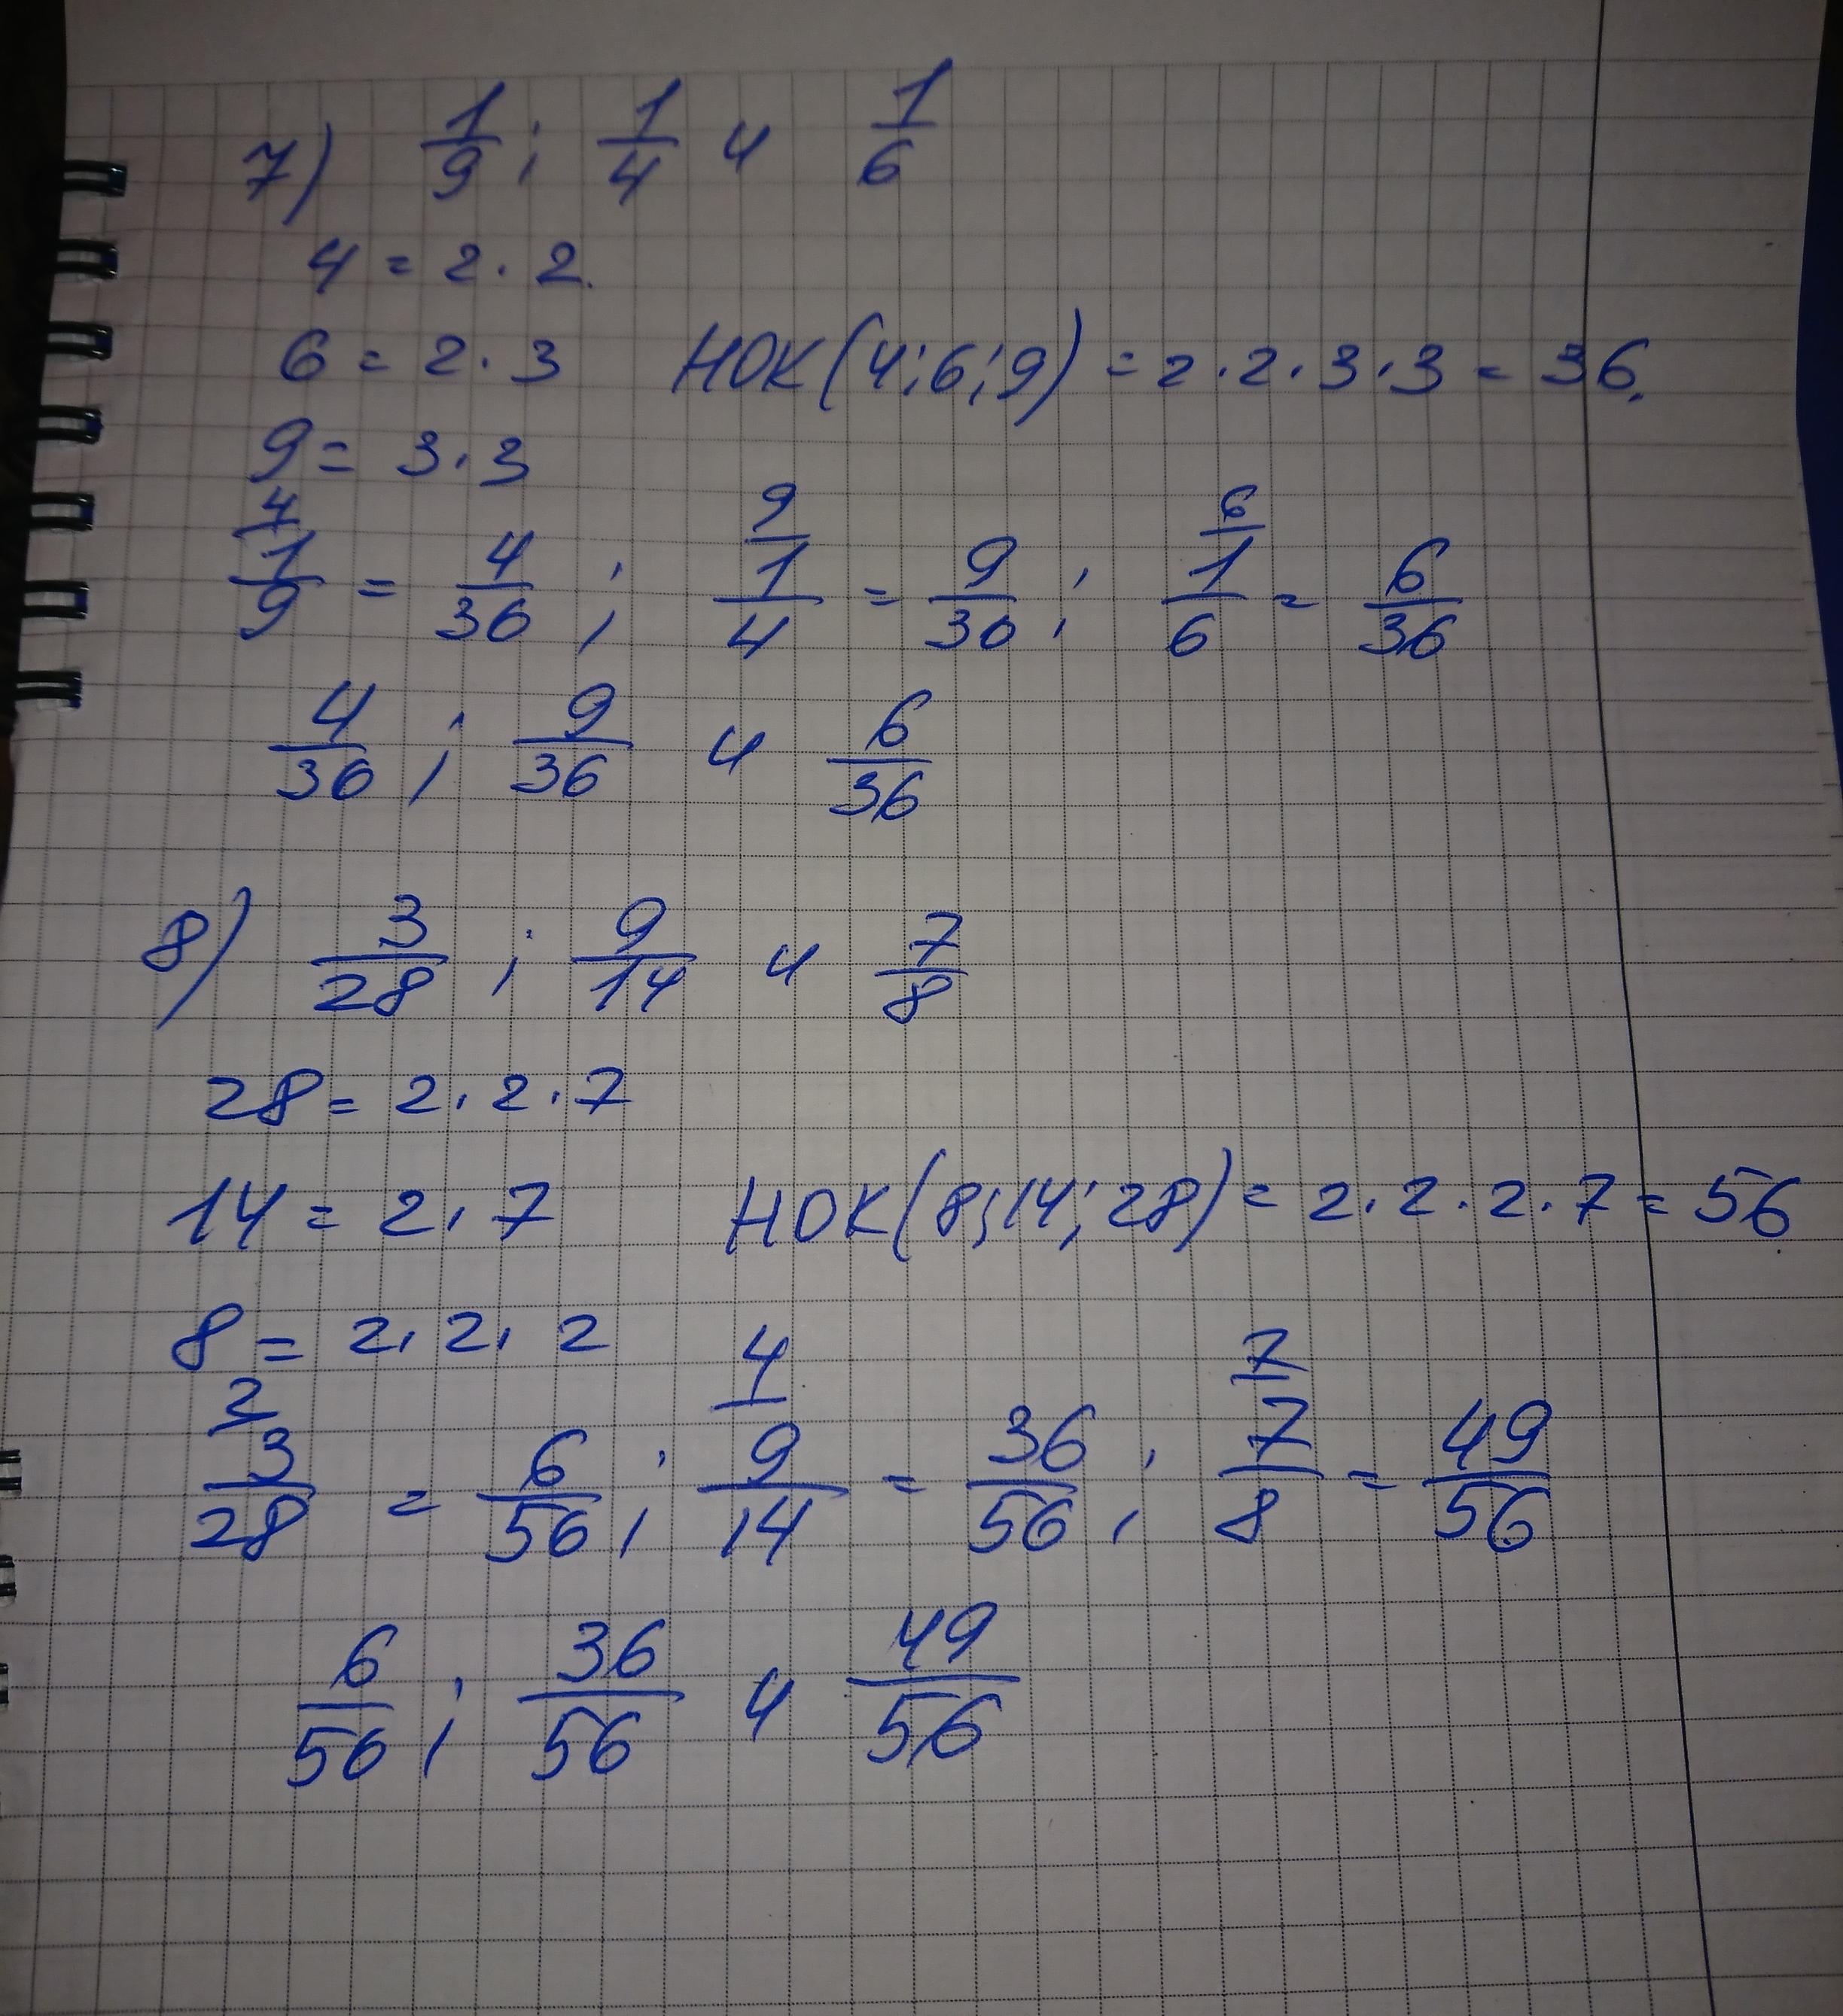 7) 1/9 ; 1/4 и 1/6
4 = 2 · 2.
6 = 2 · 3 НОК(4;6;9) = 2 · 2 · 3 · 3 = 36.
9 = 3 · 3
4/ 1/9 = 4/36 ; 9/ 1/4 = 9/36 ; 6/ 1/6 = 6/36
4/36 ; 9/36 и 6/36
8) 3/28 ; 9/14 и 7/8
28 = 2 · 2 · 7
14 = 2 · 7 НОК(8;14;28) = 2 · 2 · 2 · 7 = 56
8 = 2 · 2 · 2
2/ 3/28 = 6/56 ; 4/ 9/14 = 36/56 ; 7/ 7/8 = 49/56
6/56 ; 36/56 и 49/56